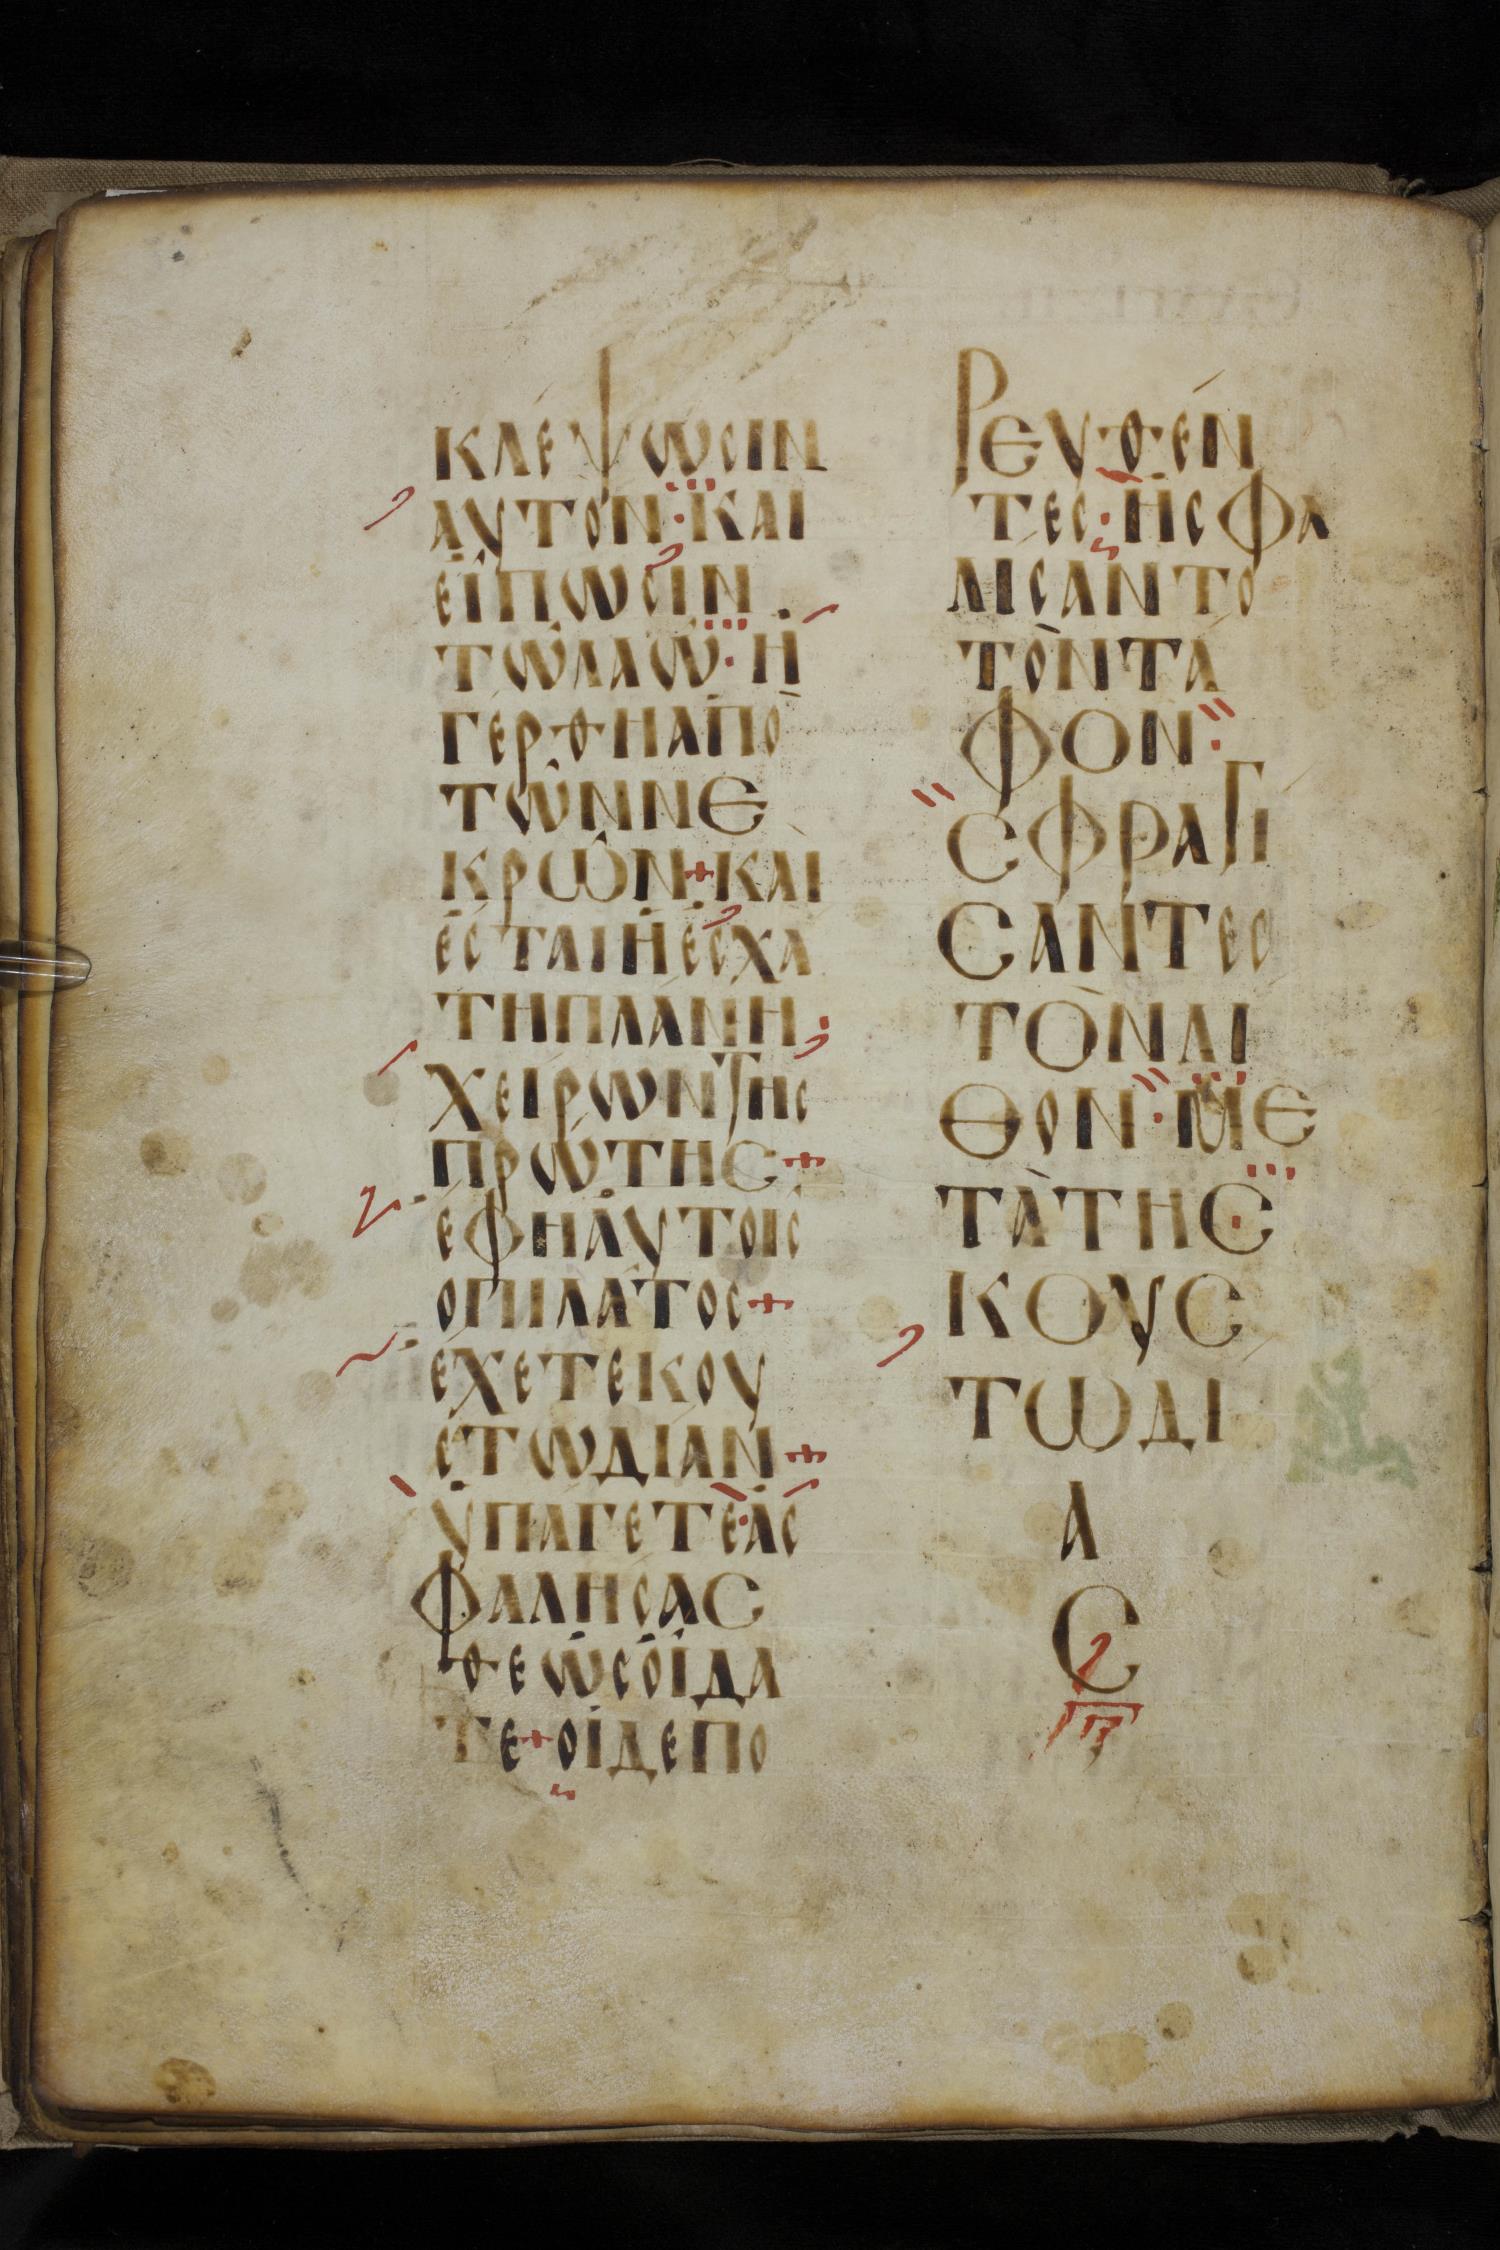 ΚΛΕΨΩΣΙΝ
ΑΥΤΟΝ·ΚΑΙ
ΕΙΠΩΣΙΝ
ΤΩΛΑΩ·Η
ΓΕΡΘΗΑΠΟ
ΤΩΝΝΕ
ΚΡΩΝ+ΚΑΙ
ΕΣΤΑΙΗΕΣΧΑ
ΤΗΠΛΑΝΗ
ΧΕΙΡΩΝΤΗΣ
ΠΡΩΤΗΣ+
ΕΦΗΑΥΤΟΙΣ
ΟΠΙΛΑΤΟΣ+
ΕΧΕΤΕΚΟΥ
ΣΤΩΔΙΑΝ+
ΥΠΑΓΕΤΕ·ΑΣ
ΦΑΛΗΣΑΣ
ΘΕΩΣΟΙΔΑ
ΤΕ+ΟΙΔΕΠΟ
ΡΕΥΘΕΝ
ΤΕΣ·ΗΣΦΑ
ΛΙΣΑΝΤΟ
ΤΟΝΤΑ
ΦΟΝ·
ΣΦΡΑΓΙ
ΣΑΝΤΕΣ
ΤΟΝΛΙ
ΘΟΝ·ΜΕ
ΤΑΤΗΣ
ΚΟΥΣ
ΤΩΔΙ
Α
Σ